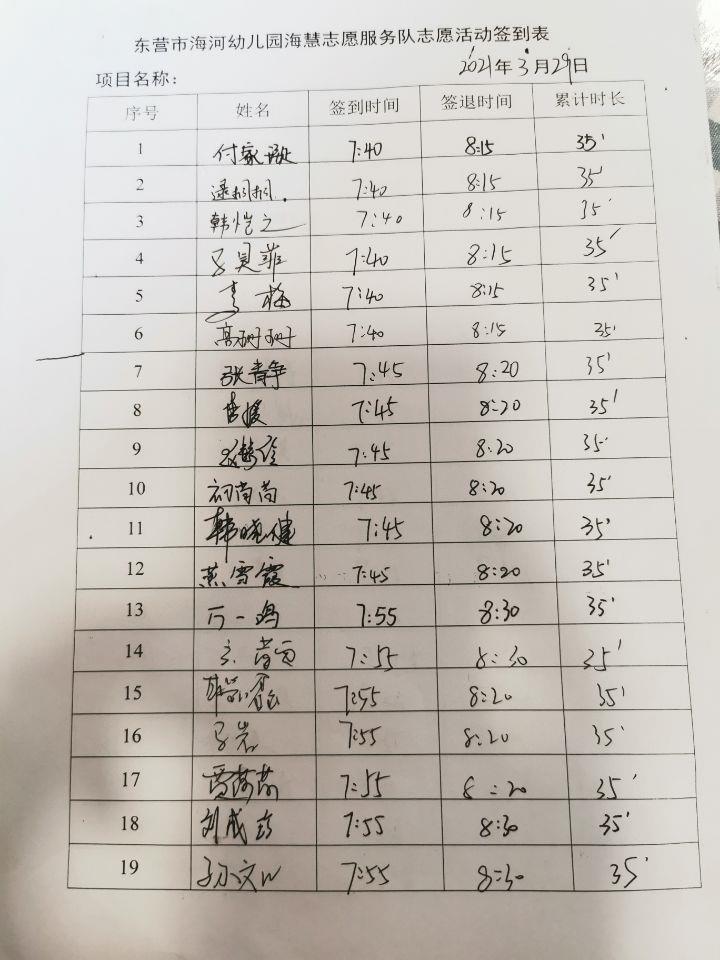 东营市海河幼儿园海慧志愿服务队志愿活动签到表
2021年3月29日
项目名称：
序号 姓名 签到时间 签退时间 累计时长
1 付家 7:40 8:15 35'
2 7:40 8:15 35'
3 韩恺之 7:40 8:15 35'
4 7:40 8:15 35'
5 7:40 8:15 35'
6 高珊珊 7:40 8:15 35'
7 张静 7:45 8:20 35'
8 7:45 8:20 35'
9 7:45 8:20 35'
10 初尚尚 7:45 8:20 35'
11 韩晓健 7:45 8:20 35'
12 燕雪霞 7:45 8:20 35'
13 万一鸣 7:55 8:30 35'
14 7:55 8:30 35'
15 7:55 8:20 35'
16 7:55 8:20 35'
17 贾茜茜 7:55 8:20 35'
18 刘成 7:55 8:30 35'
19 孙文 7:55 8:30 35'